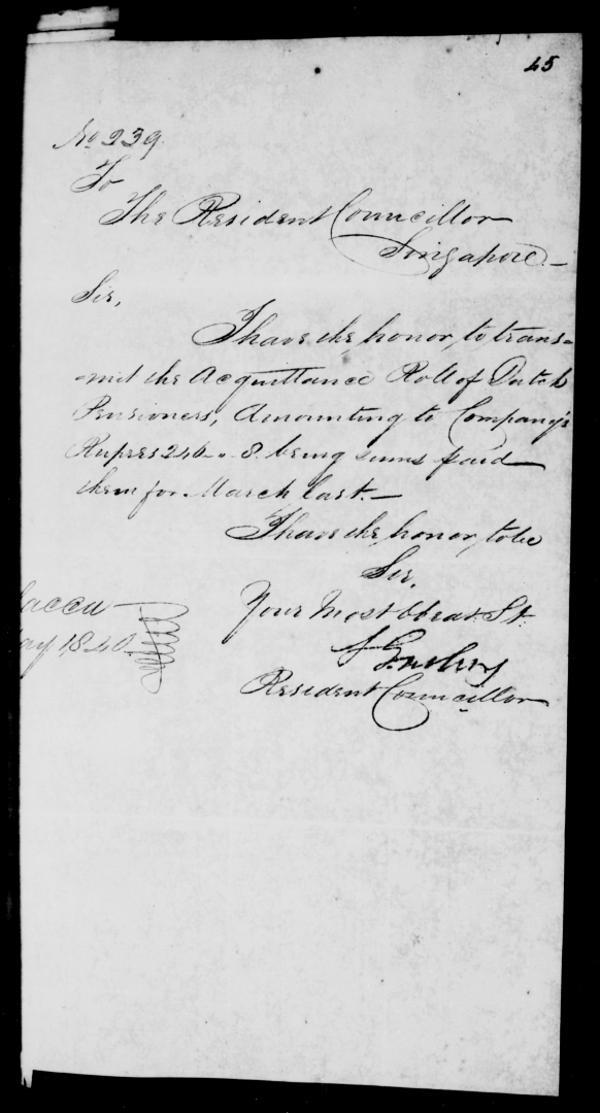 45
No 239
To
The Resident Councillor
Singapore.—
Sir,
I have the honor, to trans=
=mit the Acquittance Roll of Dutch
Pensioners, Amounting to Company's
Rupees 246 " 8. being sums paid
them for March last.—
I have the honor, to be
Sir,
Your Most Obedt. St.
Resident Councillor
lacca
ay 1840